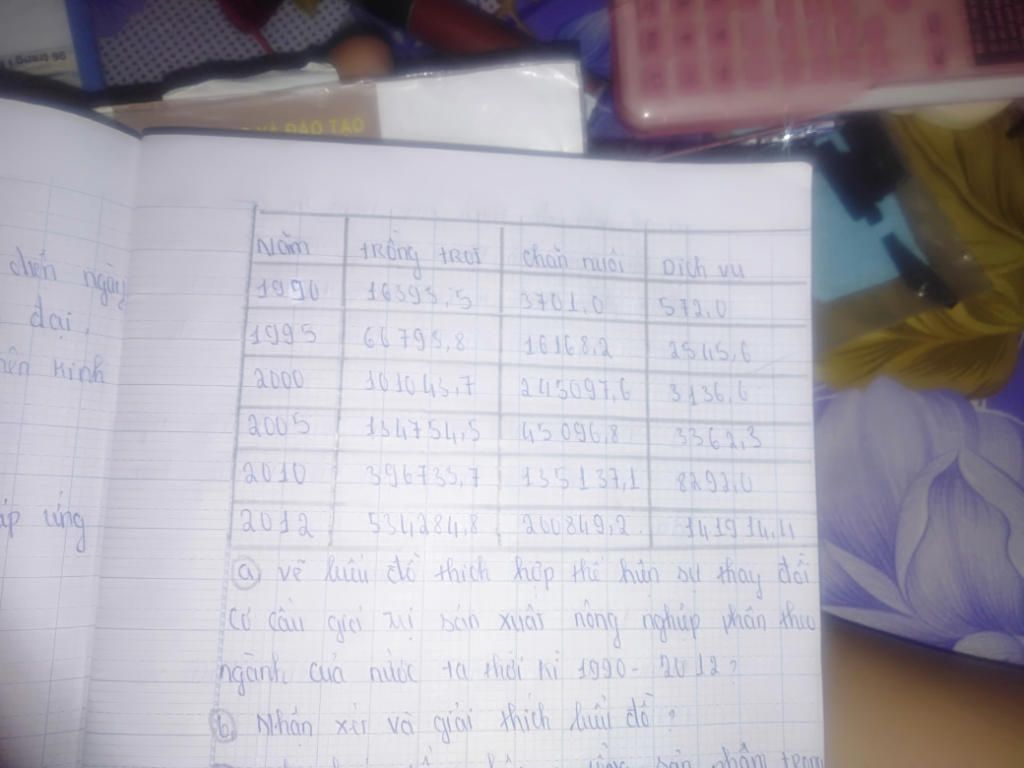 96 trang
VÀ ĐÀO TẠO
Năm trồng trọt chăn nuôi Dịch vụ
1990 16393,5 3701,0 572,0
1995 66793,8 16168,2 2545,6
2000 101043,7 245097,6 3136,6
2005 134754,5 45096,8 3362,3
2010 396733,7 135137,1 8292,0
2012 534284,8 200849,2
ngày
đại,
kinh
ứng
a vẽ biểu đồ thích hợp thể hiện sự thay đổi
cơ cấu giá trị sản xuất nông nghiệp phân theo
ngành của nước ta thời kì 1990- 2012?
b Nhận xét và giải thích biểu đồ?
sản phẩm trong